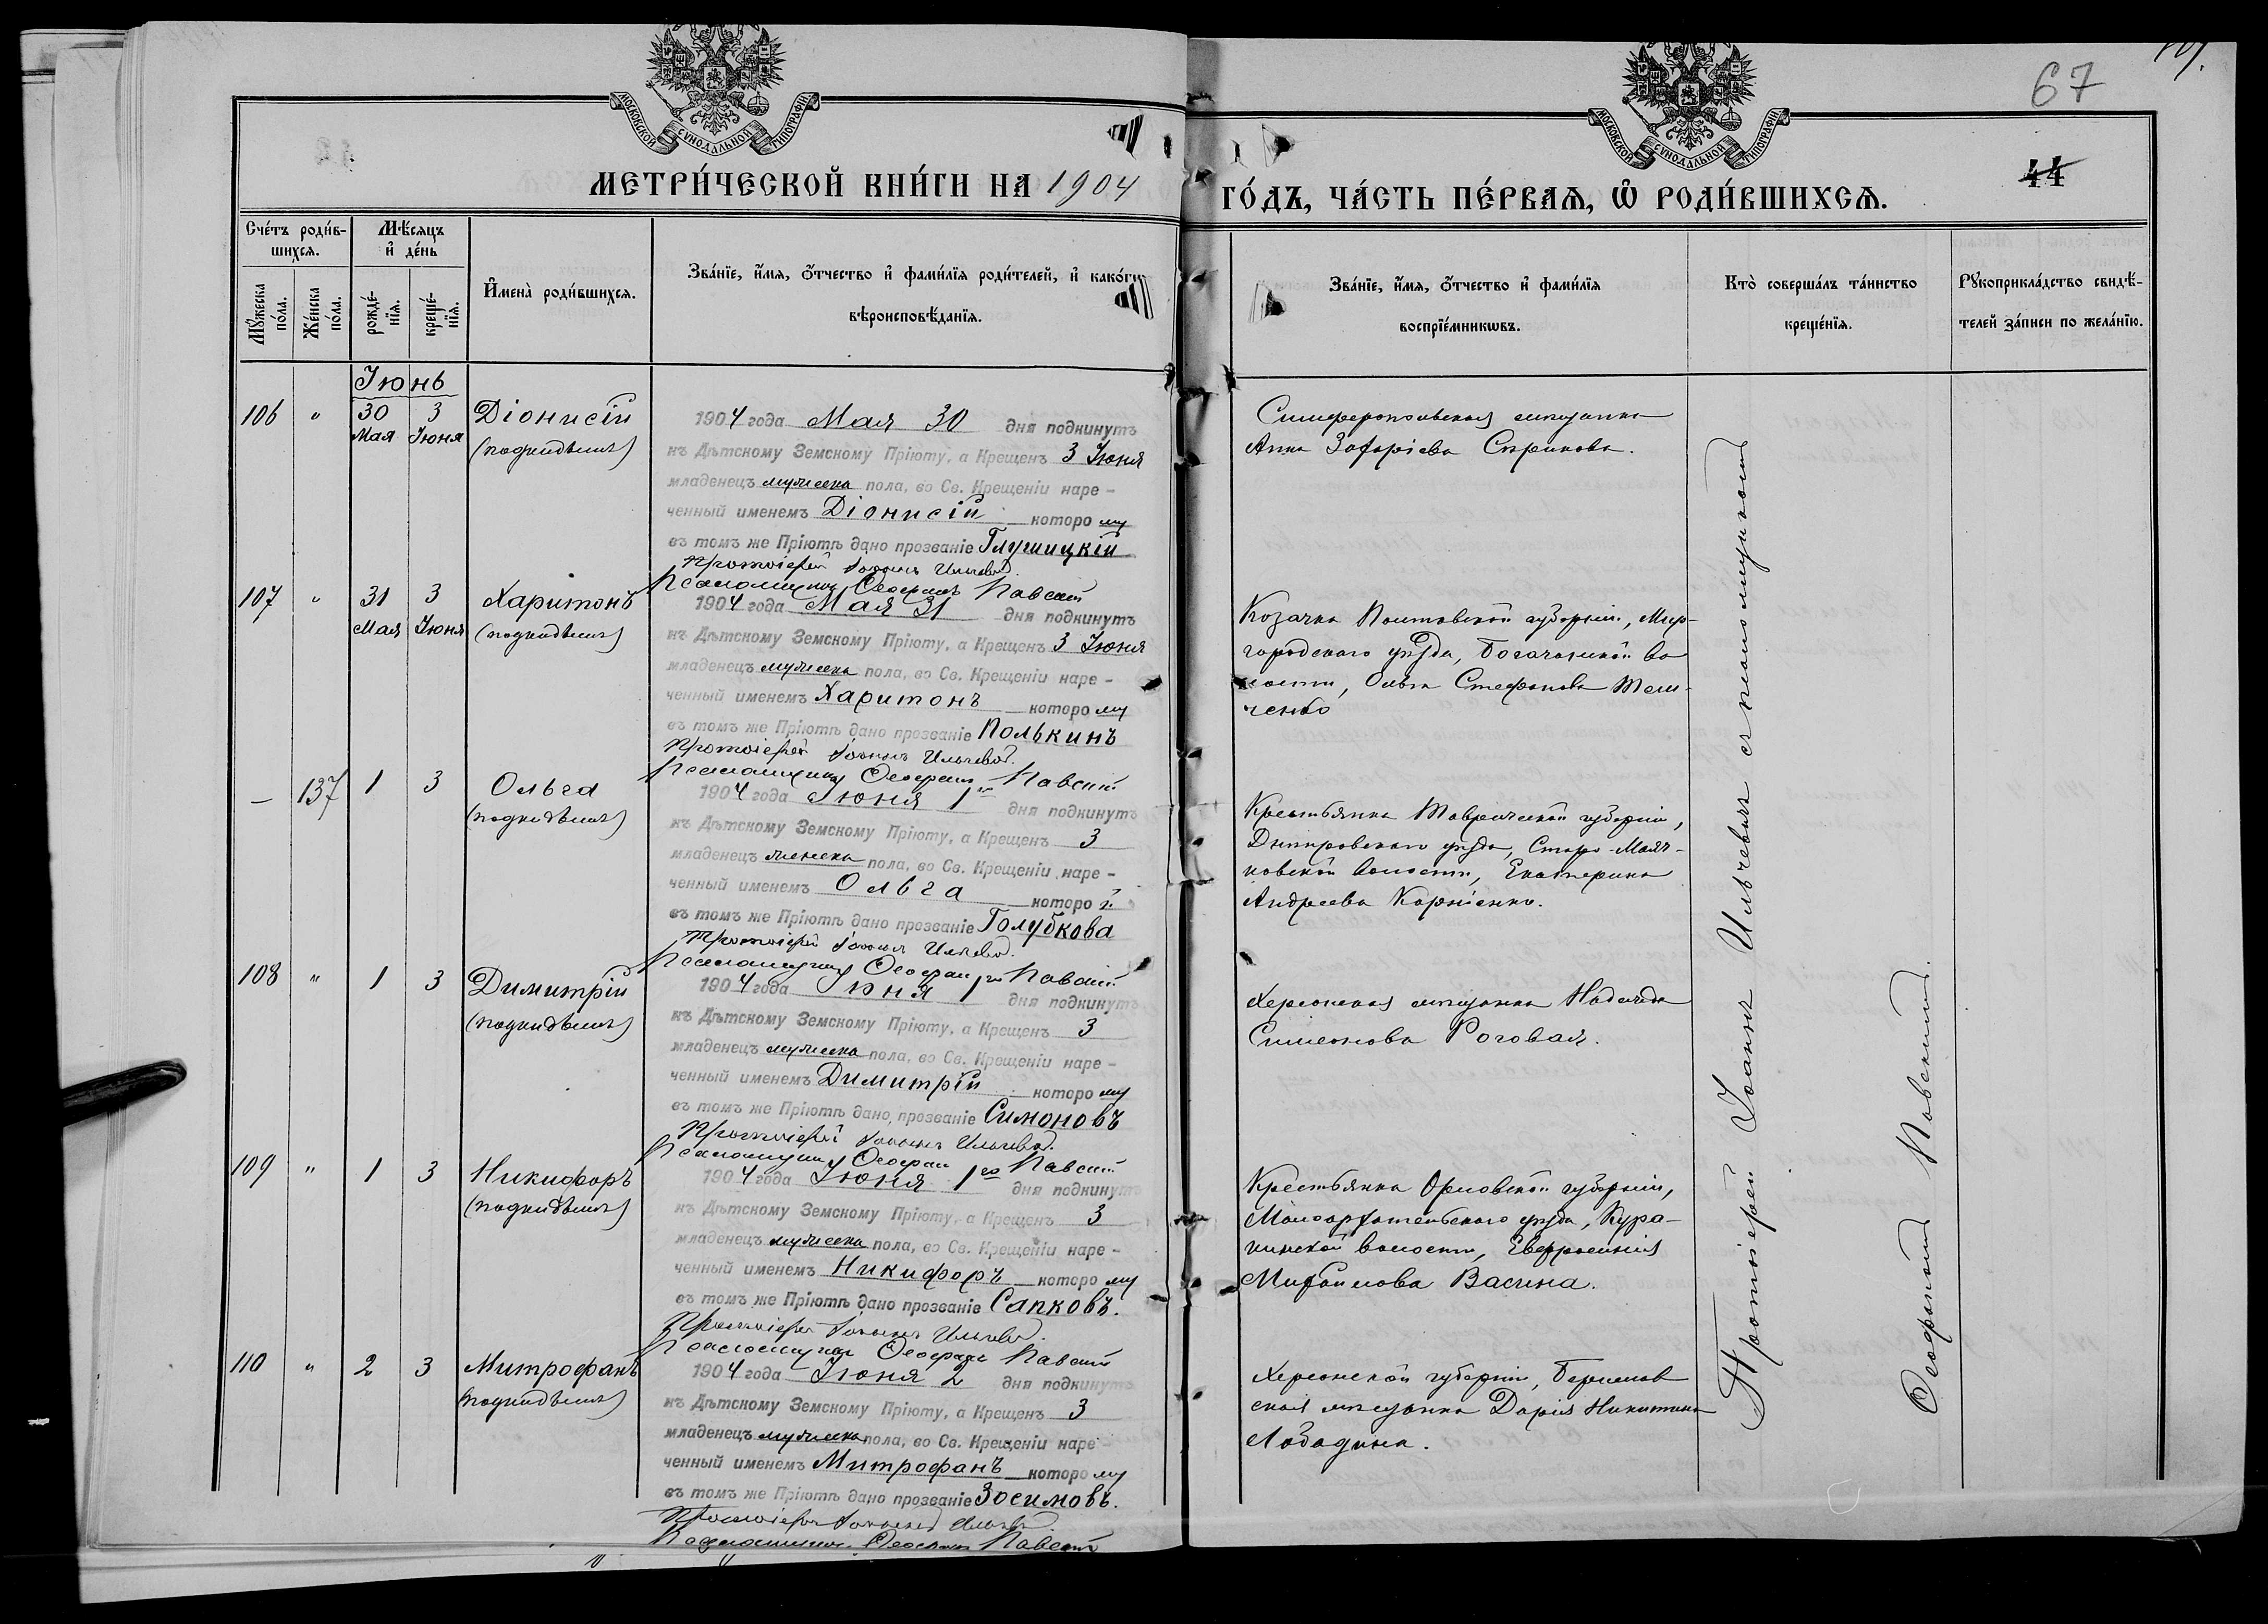 67
44
МОСКОВСКОЙ СУНОДАЛЬНОЙ ТИПОГРАФІИ
МОСКОВСКОЙ СУНОДАЛЬНОЙ ТИПОГРАФІИ
МЕТРИ́ЧЕСКОЙ КНИ́ГИ НА 1904
ГО́ДЪ, ЧА́СТЬ ПЕ́РВАѦ, Ѿ РОДИ́ВШИХСѦ.
Сче́тъ роди́в-
шихсѧ.
Мѣ́сѧцъ
и҆ де́нь
Мꙋ́жеска по́ла.
Же́нска по́ла.
рожде́-
нїѧ.
креще́-
нїѧ.
И҆мена̀ роди́вшихсѧ.
Зва́нїе, и҆́мѧ, ѻ҆́тчество и҆ фами́лїѧ роди́телей, и҆ како́гѡ
вѣроисповѣ́данїѧ.
Зва́нїе, и҆́мѧ, ѻ҆́тчество и҆ фами́лїѧ
воспрїе́мникѡвъ.
Кто̀ соверша́лъ та́инство
креще́нїѧ.
Рꙋкоприкла́дство свидѣ́-
телей за́писи по жела́нїю.
Іюнь
106 " 30 Мая 3 Іюня Діонисій
(подкидышъ)
1904 года Мая 30 дня подкинутъ
къ Дѣтскому Земскому Пріюту, а Крещенъ 3 Іюня
младенецъ мужеска пола, во Св. Крещеніи наре-
ченный именемъ Діонисій которо му
въ томъ же Пріютѣ дано прозваніе Глушицкій
Протоіерей Іоаннъ Ильчевичъ.
Псаломщикъ Ѳеофанъ Павскій
Симферопольская мѣщанка
Анна Захаріева Сприкова.
107 " 31 Мая 3 Іюня Харитонъ
(подкидышъ)
1904 года Мая 31 дня подкинутъ
къ Дѣтскому Земскому Пріюту, а Крещенъ 3 Іюня
младенецъ мужеска пола, во Св. Крещеніи наре-
ченный именемъ Харитонъ которо му
въ томъ же Пріютѣ дано прозваніе Полькинъ
Протоіерей Іоаннъ Ильчевичъ.
Псаломщикъ Ѳеофанъ Павскій
Козачка Полтавской губерніи, Мир-
городского уѣзда, Богачанской во
лости, Ольга Стефанова
ченко
— 137 1 3 Ольга
(подкидышъ)
1904 года Іюня 1го дня подкинутъ
къ Дѣтскому Земскому Пріюту, а Крещенъ 3
младенецъ женска пола, во Св. Крещеніи наре-
ченный именемъ Ольга которо й
въ томъ же Пріютѣ дано прозваніе Голубкова
Протоіерей Іоаннъ Ильчевичъ.
Псаломщикъ Ѳеофанъ Павскій
Крестьянка Таврической губерніи,
Днѣпровскаго уѣзда, Старо-Маяч-
ковской волости, Екатерина
Андреева Корніенко.
108 " 1 3 Димитрій
(подкидышъ)
1904 года Іюня 1го дня подкинутъ
къ Дѣтскому Земскому Пріюту, а Крещенъ 3
младенецъ мужеска пола, во Св. Крещеніи наре-
ченный именемъ Димитрій которо му
въ томъ же Пріютѣ дано прозваніе Симоновъ
Протоіерей Іоаннъ Ильчевичъ.
Псаломщикъ Ѳеофанъ Павскій
Херсонская мѣщанка Надежда
Симеонова Роговая.
109 " 1 3 Никифоръ
(подкидышъ)
1904 года Іюня 1го дня подкинутъ
къ Дѣтскому Земскому Пріюту, а Крещенъ 3
младенецъ мужеска пола, во Св. Крещеніи наре-
ченный именемъ Никифоръ которо му
въ томъ же Пріютѣ дано прозваніе Сапковъ.
Протоіерей Іоаннъ Ильчевичъ.
Псаломщикъ Ѳеофанъ Павскій
Крестьянка Орловской губерніи,
Малоархательскаго уѣзда, Кура-
кинской волости, Евфросинія
Михайлова Васина.
110 " 2 3 Митрофанъ
(подкидышъ)
1904 года Іюня 2 дня подкинутъ
къ Дѣтскому Земскому Пріюту, а Крещенъ 3
младенецъ мужеска пола, во Св. Крещеніи наре-
ченный именемъ Митрофанъ которо му
въ томъ же Пріютѣ дано прозваніе Зосимовъ.
Протоіерей Іоаннъ Ильчевичъ
Псаломщикъ Ѳеофанъ Павскій
Херсонской губерніи, Берислав
ская мѣщанка Дарія Никитина
Лободина.
Протоіерей Іоаннъ Ильчевичъ съ псаломщикомъ
Ѳеофаномъ Павскимъ.